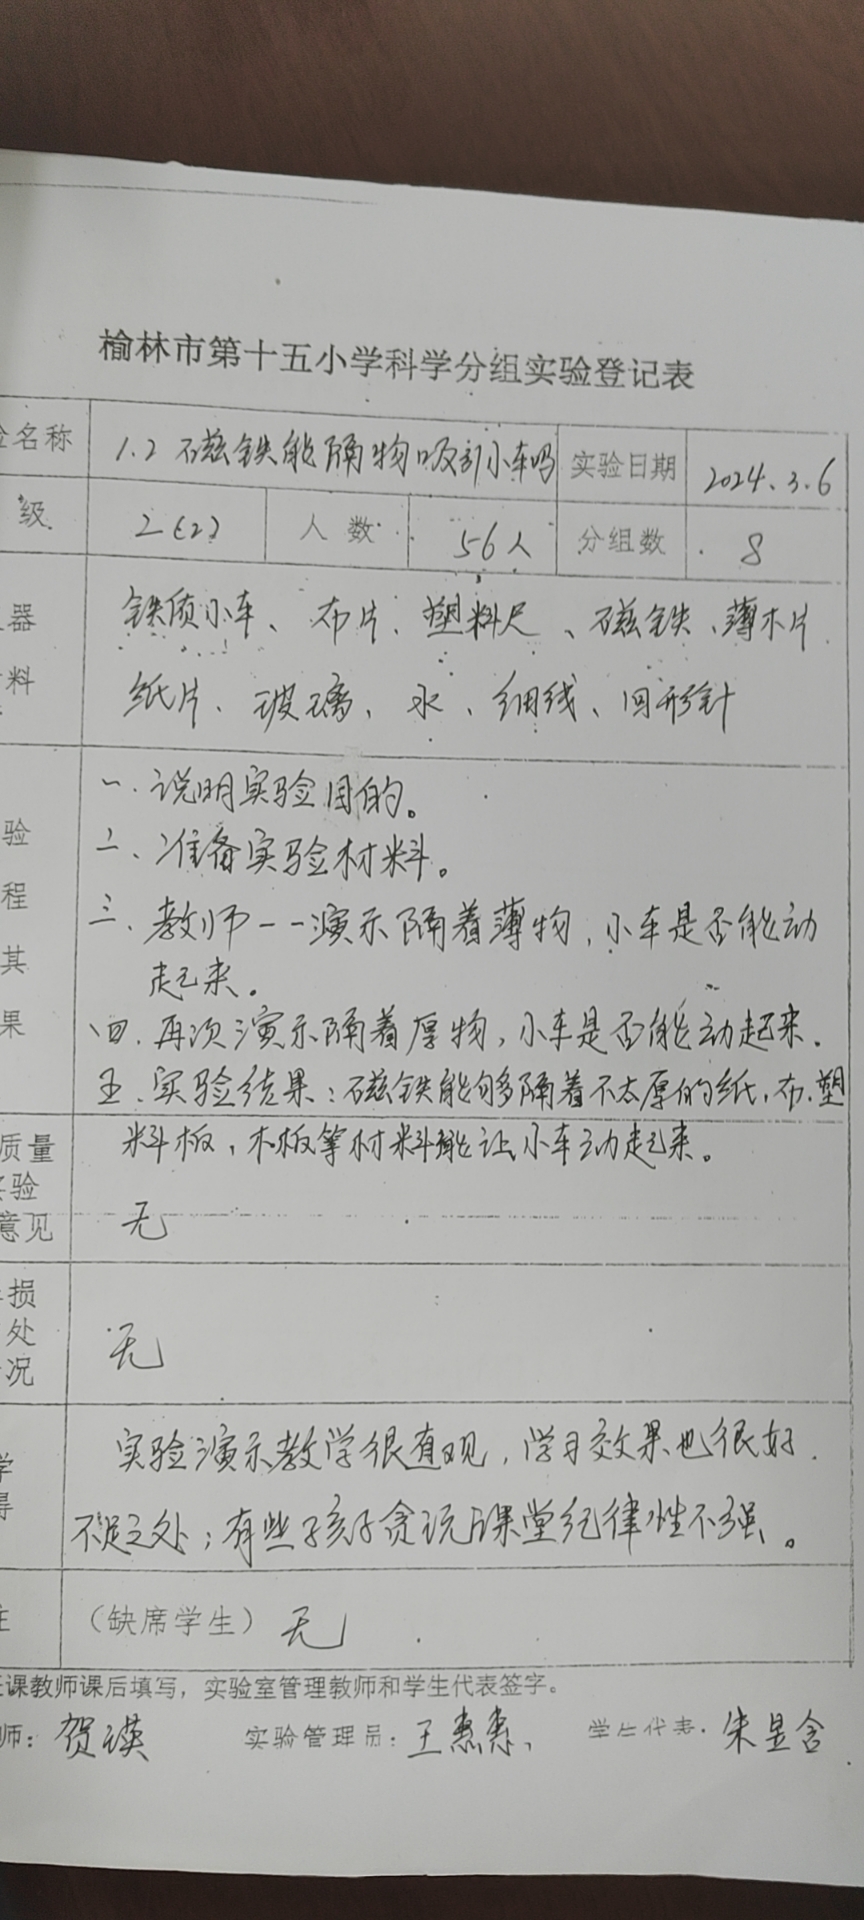 榆林市第十五小学科学分组实验登记表
名称 1.2 磁铁能隔物吸引小车吗 实验日期 2024.3.6
级 2(2) 人数 56人 分组数 8
器 铁质小车、布片、塑料尺、磁铁、薄木片
料 纸片、玻璃、水、细线、回形针
一、说明实验目的。
验 二、准备实验材料。
程 三、教师一一演示隔着薄物,小车是否能动
其 起来。
果 四、再次演示隔着厚物,小车是否能动起来.
五、实验结果:磁铁能够隔着不太厚的纸,布、塑
质量 料板,木板等材料能让小车动起来。
验
意见 无
损
处 无
况
实验演示教学很直观,学习效果也很好.
不足之处;有些孩子贪玩课堂纪律性不强。
(缺席学生)无
课教师课后填写,实验室管理教师和学生代表签字。
师:贺瑛 实验管理员:王惠惠 学生代表:朱昱含